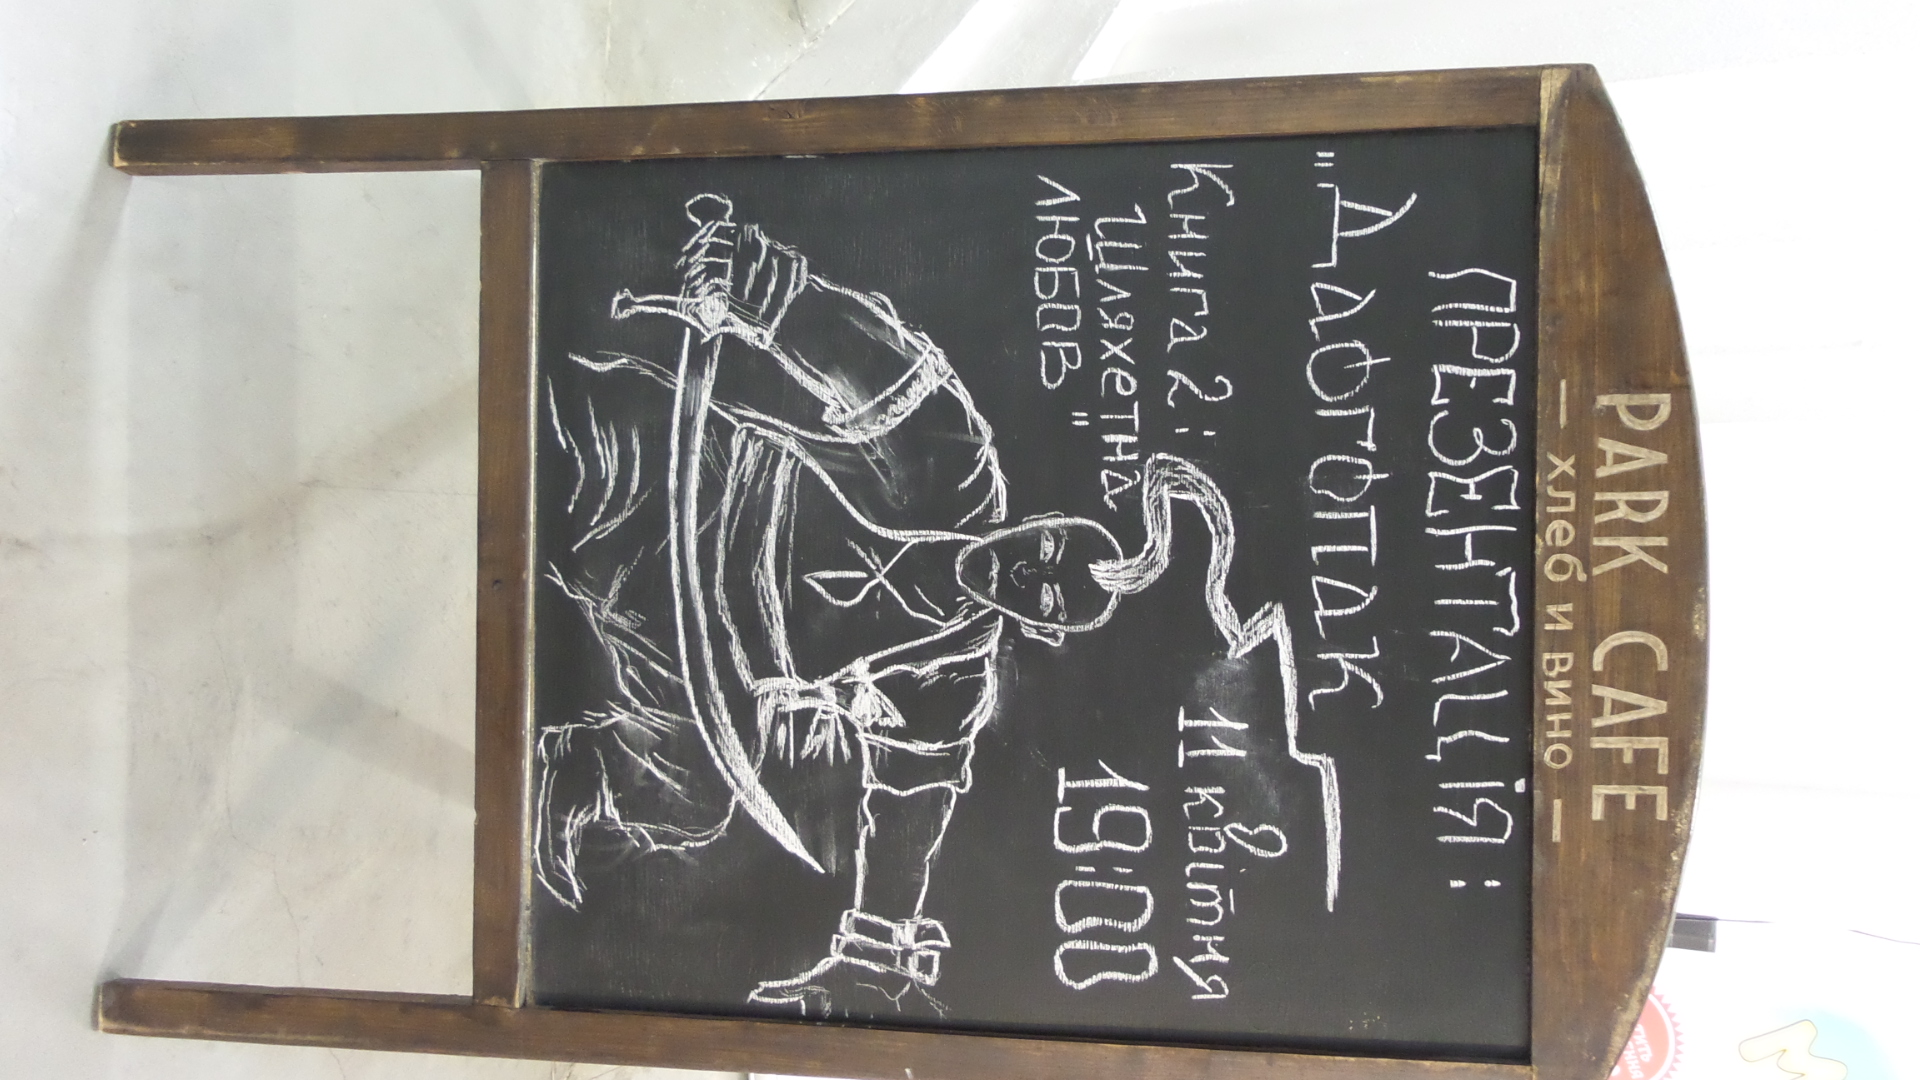 PARK CAFE
— хлеб и вино —
ПРЕЗЕНТАЦІЯ:
"Дафгфпак
Книга 2:
Шляхетна
любов"
11 квітня
19:00